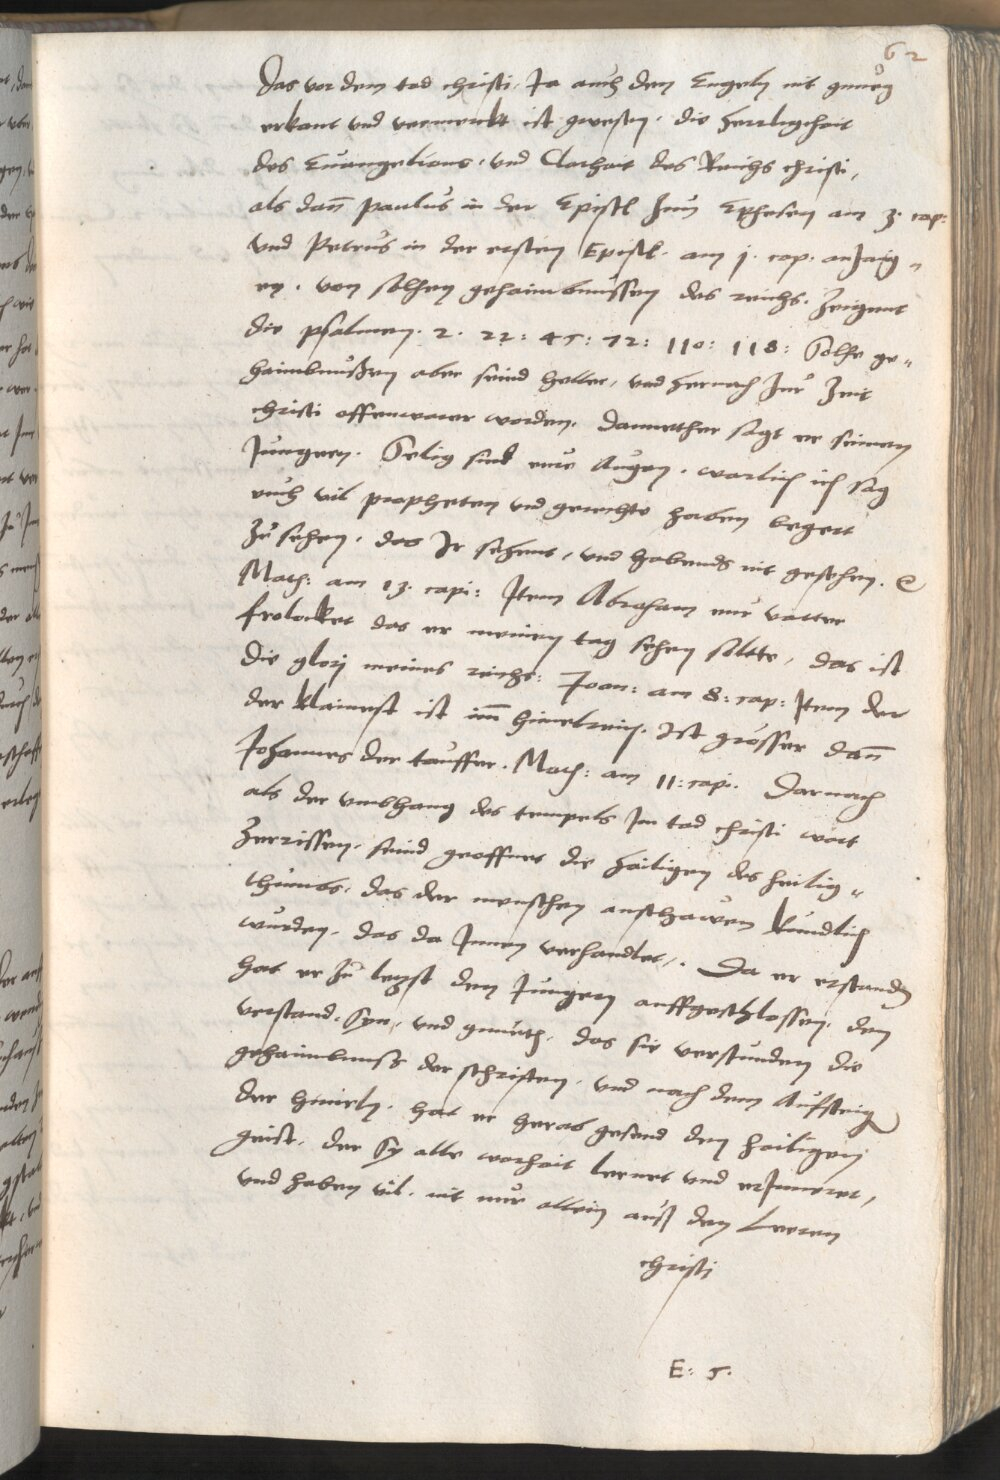 62
Das vor dem tod christi, Ja auch den Engeln nit gnueg
erkant vnd vermerkt ist gwesen. die herrligchait
des Euangelions. vnd Clarhait des Reichs christi,
als dañ Paulus in der Epistl zun Ephesen am 3. cap:
vnd Petrus in der ersten Epistl. am j. cap. anzaig-
en. von solhen gehaimbnussen des reichs. Zeigent
die psalmen. 2. 22: 45: 72: 110: 118: Solhe ge-
haimbnußen aber seind heller, vnd hernach zur Zeit
christi offenwarer worden. Dannether sagt er seinen
Jungern. Selig sind eure Augen. warlich ich sag
euch vil propheten vnd gerechte haben begert
zu sehen. das Ir sehent, vnd habends nit gesehen.
Math: am 13. capi: Item Abraham eur vatter
frolocket das er meinen tag sehen sollte, das ist
die glorj meines reichs: Joan: am 8: cap: Item der
der klainest ist im himelreich. Ist grösser dañ
Johannes der tauffer. Math: am 11: capi. Darnach
als der vmbhang des tempels Im tod christi wart
Zerrissen. seind geoffnet die hailigen des heilig-
thumbs. das der menschen anschawen kundlich
wurden. das da Innen verhandlet. Da er erstanden
hat er zu letzst den Jungern auffgeschlossen. den
verstand. Syn, vnd gmueth. das sie verstunden die
gehaimbnuß der schrifften. vnd nach dem Auffsteig
der himeln. hat er herab gesend den hailigen
geist. der Sy alle warhait lernet vnd erInneret,
vnd haben vil. nit nur allein auß den Leeren
christi
E: 5.